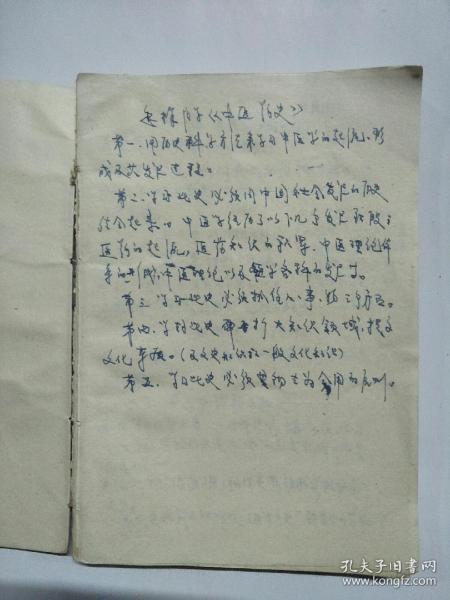 怎样自学《中医药史》
第一、用历史科学方法来学习中医学的起源、形
成及其发展过程。
第二、学习此史必须同中国社会发展的历史
结合起来。中医学经历了以下几个发展阶段：
医药的起源，医药知识的积累，中医理论体
系的形成，中医理论以及医学各科的发展。
第三、学习此史必须抓住人、事、
第四、学习此史 扩大知识领域，提文
化 (及文史知识和一般文化知识)
第五、学习此史必须贯彻古为今用的原则。
孔夫子旧书网
www.kongfz.com